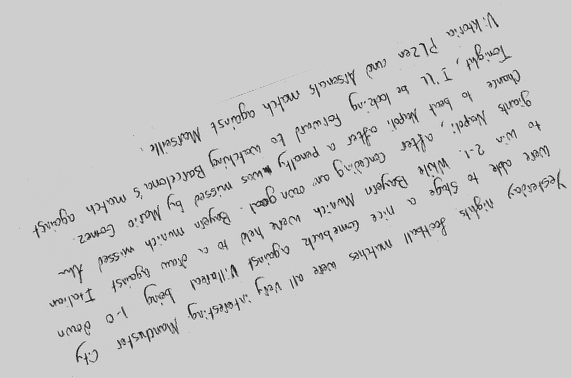 Yesterday nights football matches were all very interesting Manchester City
were able to stage a nice comeback against Villareal being 1-0 down
to win 2-1. While Bayern Munich were held to a draw against Italian
giants Napoli, after conceding an own goal. Bayern munich missed the
chance to beat Napoli after a penalty was missed by Mario Gomez.
Tonight, I'll be looking forward to watching Barcelona's match against
Viktoria PLZen and Arsenals match against Marseille.